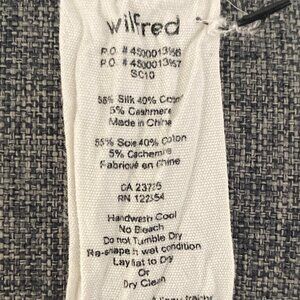 wilfred
P.O. # 4500013156
P.O. # 4500013157
SC10
55% Silk 40% Cotton
5% Cashmere
Made in China
55% Soie 40% Coton
5% Cachemire
Fabriqué en Chine
CA 23725
RN 122354
Handwash Cool
No Bleach
Do not Tumble Dry
Re-shape in wet condition
Lay flat to Dry
Or
Dry Clean